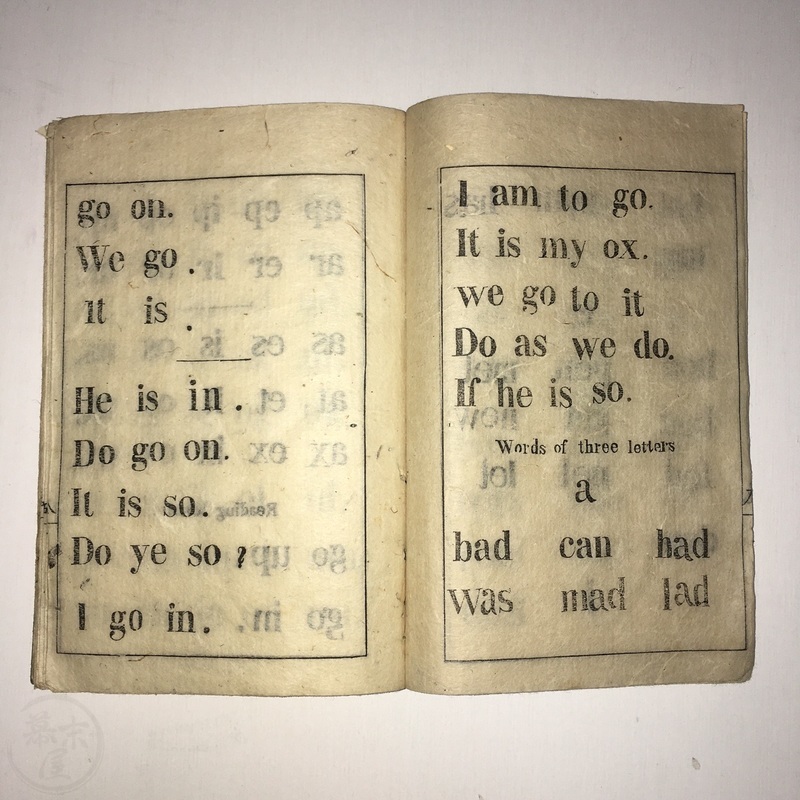 go on.
We go.
It is.
He is in.
Do go on.
It is so.
Do ye so?
I go in.
I am to go.
It is my ox.
we go to it
Do as we do.
If he is so.
Words of three letters
a
bad can had
was mad lad